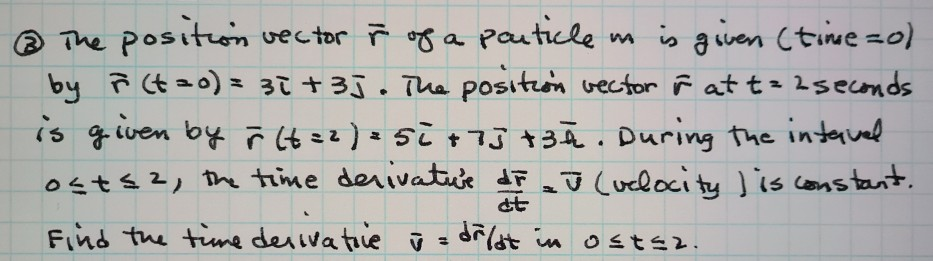 ③ The position vector r̄ of a particle m is given (time=0)
by r̄(t=0) = 3ī + 3j̄. The position vector r̄ at t=2 seconds
is given by r̄(t=2) = 5ī + 7j̄ + 3k̄. During the interval
0≤t≤2, the time derivative dr̄/dt = v̄ (velocity) is constant.
Find the time derivative v̄ = dr̄/dt in 0≤t≤2.